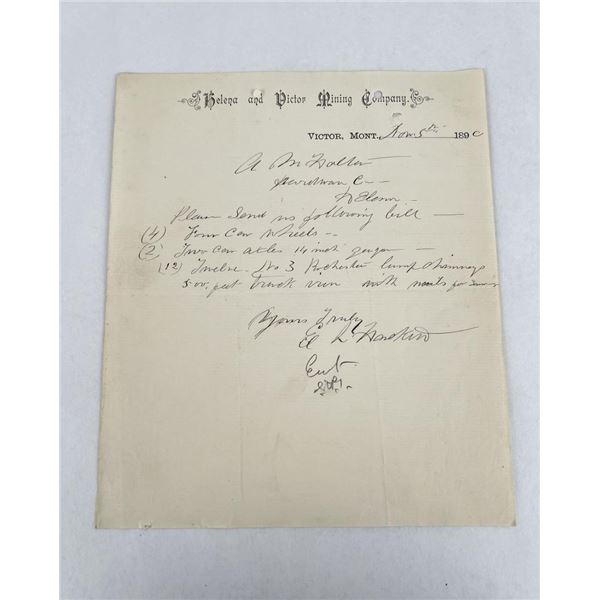 Helena and Victor Mining Company.
VICTOR, MONT. Nov 5th 1890
A M Holter
Hardware Co
Helena
Please Send us following bill
(4) Four Car Wheels
(2) Two Car axles 14 inch gauge
(12) Twelve No 3 Rochester lamp chimneys
500 feet track iron with
Yours Truly